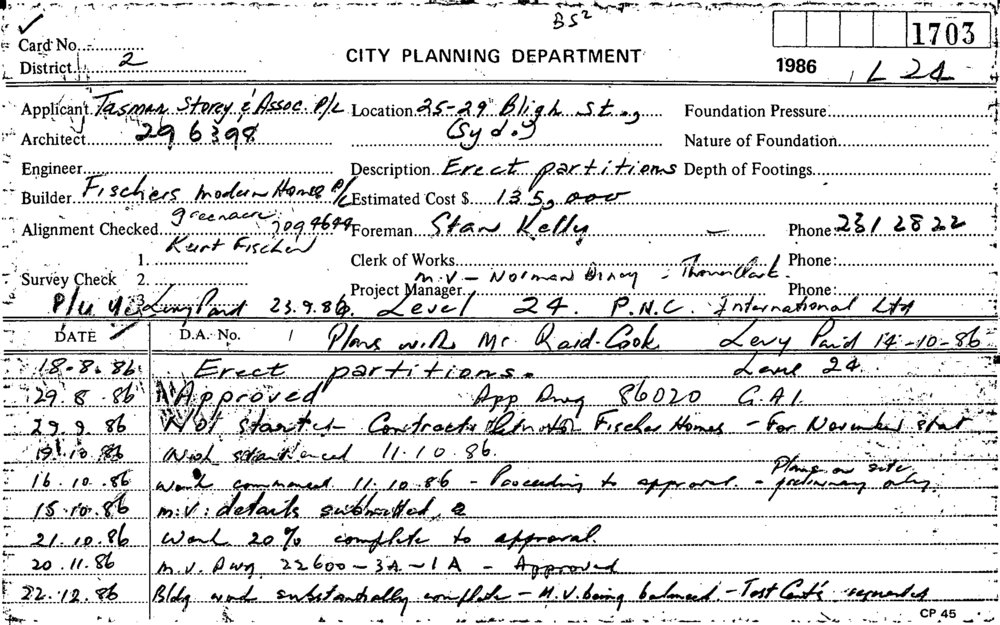 BS²
Card No.
1703
District 2
CITY PLANNING DEPARTMENT
1986
L 24
Applicant Tasman Storey & Assoc. P/L
Location 25-29 Bligh St.,
Foundation Pressure
Architect 29 6398
(Syd.)
Nature of Foundation
Engineer
Description Erect partitions
Depth of Footings
Builder Fischers Modern Homes P/L
Estimated Cost $ 135,000
Greenacre
Alignment Checked 709 4644
Foreman Stan Kelly
Phone 231 2822
Kurt Fischer
1.
Clerk of Works
Phone:
Survey Check 2.
M.V - Norman Disney - Thomas Clark.
Project Manager
Phone:
3.
Levy Paid 23.9.86. Level 24. P.N.C. International Ltd
DATE
D.A. No. Plans with Mr. Raid-Cook Levy Paid 14-10-86
18.8.86 Erect partitions. Level 24.
29.8.86 Approved App Dwg 86020 G.A1.
29.9.86 Not started Fischer Homes - For November start
11.10.86.
Plans on site
16.10.86 Work commenced 11.10.86 - Proceeding to approval. - preliminary only.
15.10.86 M.V. details submitted
21.10.86 Work 20% complete to approval
20.11.86 M.V. Dwg 22600-3A-1A - Approved
22.12.86 Bldg work substantially complete - M.V. being balanced. - Test Certs requested
CP 45